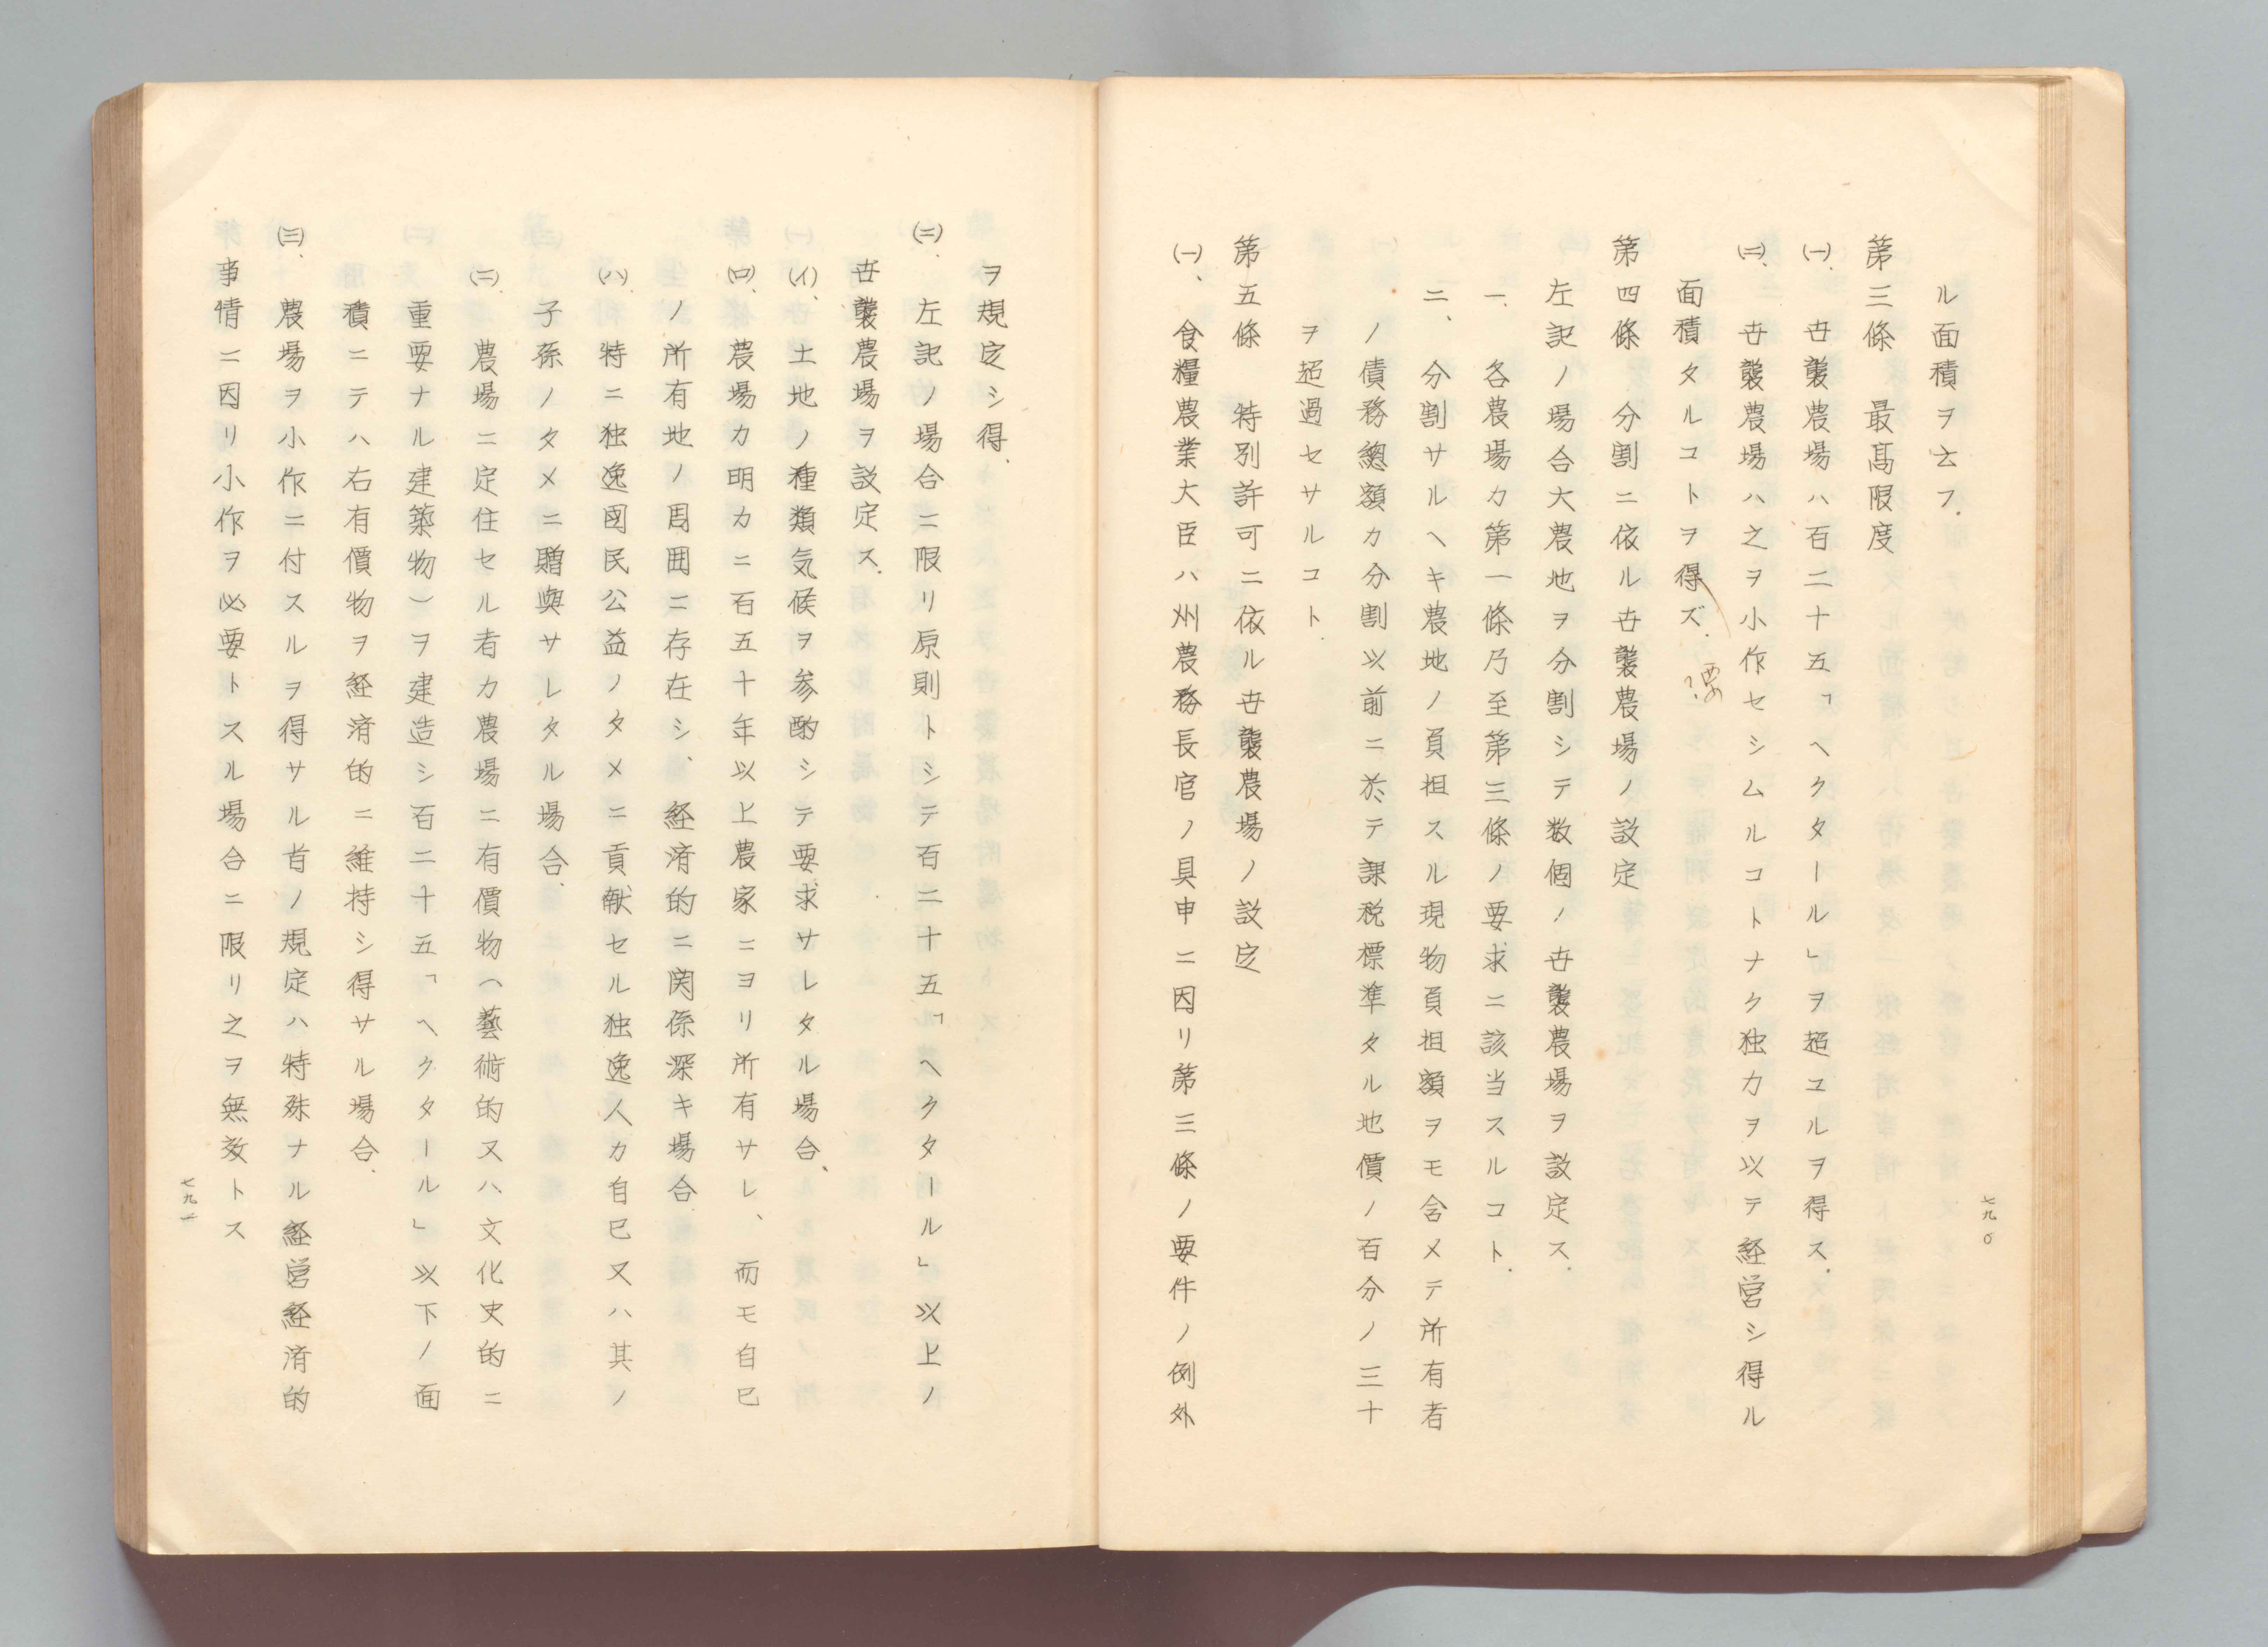 七九〇
ル面積ヲ云フ.
第三條　最髙限度
(一)、世襲農場ハ百二十五「ヘクタール」ヲ超ユルヲ得ス.
(二)、世襲農場ハ之ヲ小作セシムルコトナク独力ヲ以テ経営シ得ル
面積タルコトヲ得ズ. 要
第四條　分割ニ依ル世襲農場ノ設定
左記ノ場合大農地ヲ分割シテ数個ノ世襲農場ヲ設定ス.
一　各農場カ第一條乃至第三條ノ要求ニ該当スルコト.
二、分割サルヘキ農地ノ負担スル現物負担額ヲモ含メテ所有者
ノ債務總額カ分割以前ニ於テ課税標準タル地價ノ百分ノ三十
ヲ超過セサルコト.
第五條　特別許可ニ依ル世襲農場ノ設定
(一)、食糧農業大臣ハ州農務長官ノ具申ニ因リ第三條ノ要件ノ例外
ヲ規定シ得、
(二)、左記ノ場合ニ限リ原則トシテ百二十五「ヘクタール」以上ノ
世襲農場ヲ設定ス.
(イ)、土地ノ種類気候ヲ参酌シテ要求サレタル場合、
(ロ)、農場カ明カニ百五十年以上農家ニヨリ所有サレ、而モ自己
ノ所有地ノ周囲ニ存在シ、経済的ニ関係深キ場合、
(ハ)、特ニ独逸國民公益ノタメニ貢献セル独逸人カ自己又ハ其ノ
子孫ノタメニ贈與サレタル場合、
(ニ)、農場ニ定住セル者カ農場ニ有價物(藝術的又ハ文化史的ニ
重要ナル建築物)ヲ建造シ百二十五「ヘクタール」以下ノ面
積ニテハ右有價物ヲ経済的ニ維持シ得サル場合、
(三)、農場ヲ小作ニ付スルヲ得サル旨ノ規定ハ特殊ナル経営経済的
事情ニ因リ小作ヲ必要トスル場合ニ限リ之ヲ無效トス
七九一